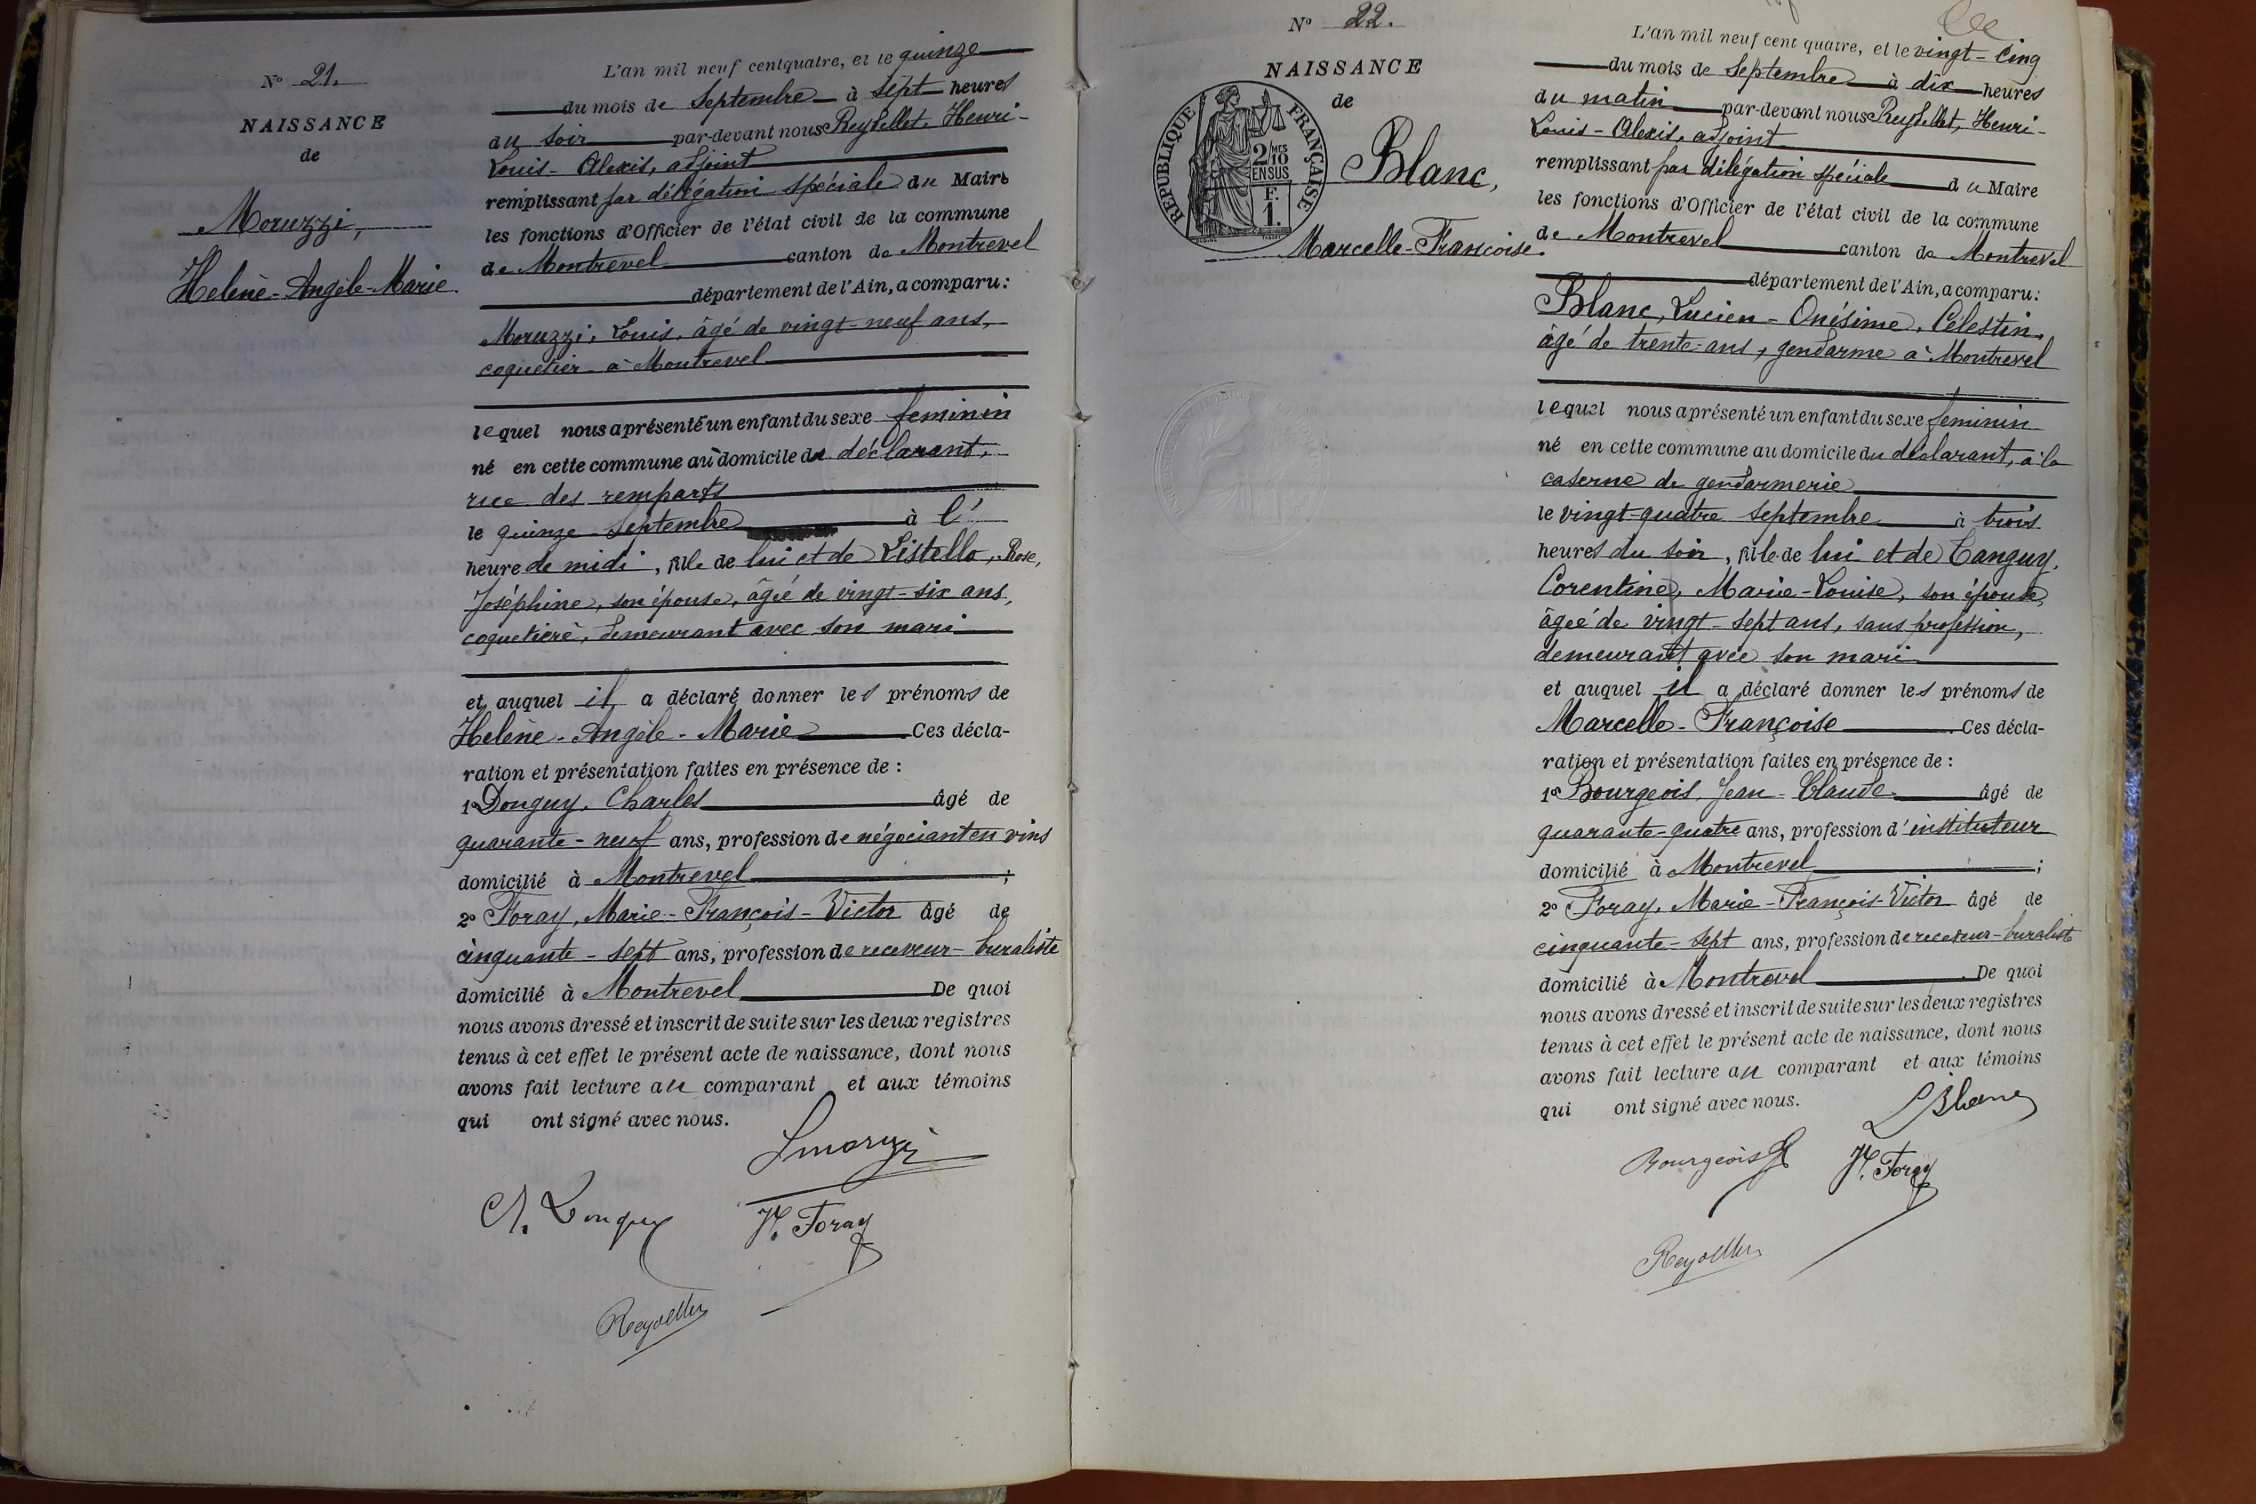 N° 21.
NAISSANCE
de
Moruzzi,
Helène-Angèle-Marie.
L'an mil neuf cent quatre, et le quinze
du mois de Septembre à sept heures
du soir par-devant nous Reysellet, Henri-
Louis-Alexis, adjoint
remplissant par délégation spéciale du Maire
les fonctions d'Officier de l'état civil de la commune
de Montrevel canton de Montrevel
département de l'Ain, a comparu:
Moruzzi, Louis, âgé de vingt-neuf ans,
coquetier à Montrevel
lequel nous a présenté un enfant du sexe feminin
né en cette commune au domicile du déclarant,
rue des remparts
le quinze Septembre à l'
heure de midi, fille de lui et de Listello, Rose,
Joséphine, son épouse, âgée de vingt-six ans,
coquetière, demeurant avec son mari
et auquel il a déclaré donner les prénoms de
Helène-Angèle-Marie Ces décla-
ration et présentation faites en présence de :
1° Donguy, Charles âgé de
quarante-neuf ans, profession de négociant en vins
domicilié à Montrevel ;
2° Foray, Marie-François-Victor âgé de
cinquante-sept ans, profession de receveur-buraliste
domicilié à Montrevel De quoi
nous avons dressé et inscrit de suite sur les deux registres
tenus à cet effet le présent acte de naissance, dont nous
avons fait lecture au comparant et aux témoins
qui ont signé avec nous.
Lmoruzzi
Ch. Donguy V. Foray
Reysellet
N° 22.
NAISSANCE
de
RÉPUBLIQUE FRANÇAISE
2/10 MES
EN SUS
F.
1.
Blanc,
Marcelle-Francoise.
L'an mil neuf cent quatre, et le vingt-cinq
du mois de Septembre à dix heures
du matin par-devant nous Reysellet, Henri-
Louis-Alexis, adjoint
remplissant par délégation spéciale du Maire
les fonctions d'Officier de l'état civil de la commune
de Montrevel canton de Montrevel
département de l'Ain, a comparu:
Blanc, Lucien-Onésime, Célestin,
âgé de trente-ans, gendarme à Montrevel
lequel nous a présenté un enfant du sexe feminin
né en cette commune au domicile du déclarant, à la
caserne de gendarmerie
le vingt-quatre Septembre à trois
heures du soir, fille de lui et de Tanguy,
Corentine, Marie-Louise, son épouse,
âgée de vingt-sept ans, sans profession,
demeurant avec son mari
et auquel il a déclaré donner les prénoms de
Marcelle-Françoise Ces décla-
ration et présentation faites en présence de :
1° Bourgeois, Jean-Claude âgé de
quarante-quatre ans, profession d'instituteur
domicilié à Montrevel ;
2° Foray, Marie-François-Victor âgé de
cinquante-sept ans, profession de receveur-buraliste
domicilié à Montrevel De quoi
nous avons dressé et inscrit de suite sur les deux registres
tenus à cet effet le présent acte de naissance, dont nous
avons fait lecture au comparant et aux témoins
qui ont signé avec nous.
LBlanc
Bourgeois V. Foray
Reysellet